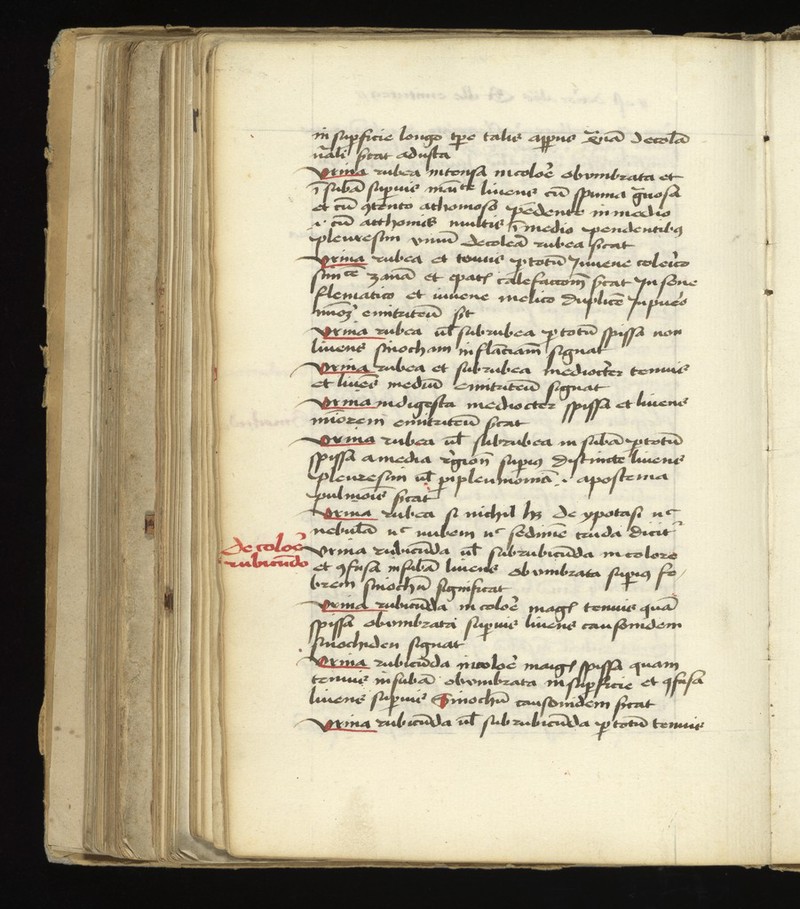 in supficie longo tpe talis appus vnā decolā
urāli sicat adusta
Vrina rubea intensa in coloē obvmbrata et
ī subāa supius maite livens cū spuma gnosa
et cū qtento athomoso pendente in medio
cū atthomis multis ī medio pendentibꝫ
pleuresim vniuē decoleā rubea sicat
Vrina rubea et tenuis p totū Juvene colerico
zanā et epatis calefaccionē sicat In sene
flematico et iuvene melico duplicē In puero
emitriteū sit
Vrina rubea ul subrubea p totū spissa non
livens sinocham inflaciam signat
Vrina rubea et subrubea mediocter tenuis
et livēs mediū emitriteū signat
Vrina indigesta mediocter spissa et livens
miorem emitriteū sicat
Vrina rubea ul subrubea in subāa p totū
spissa a media rgione supius distincte livens
pleuresim ul pipleumoniā apostema
pulmois sicat
Vrina rubea si nichil hꝫ de ypotasi nc
nebulā nc nubem nc sedimē cruda dicit
De coloē
rubicundo
Vrina rubicūda ul subrubicūda in colore
et qfusa in subāa livens obvmbrata supius fe
brem sinochū significat
Vrina rubicūda in coloē magis tenuis quā
spissa obvmbrata supius livens causonidem
sinochiden signat
Vrina rubicūda in coloē magis spissa quam
tenuis in subāa obvmbrata in supficie et qfusa
livens supius Sinochū causonidem sicat
Vrina rubicūda ul subrubicūda p totū tenuis